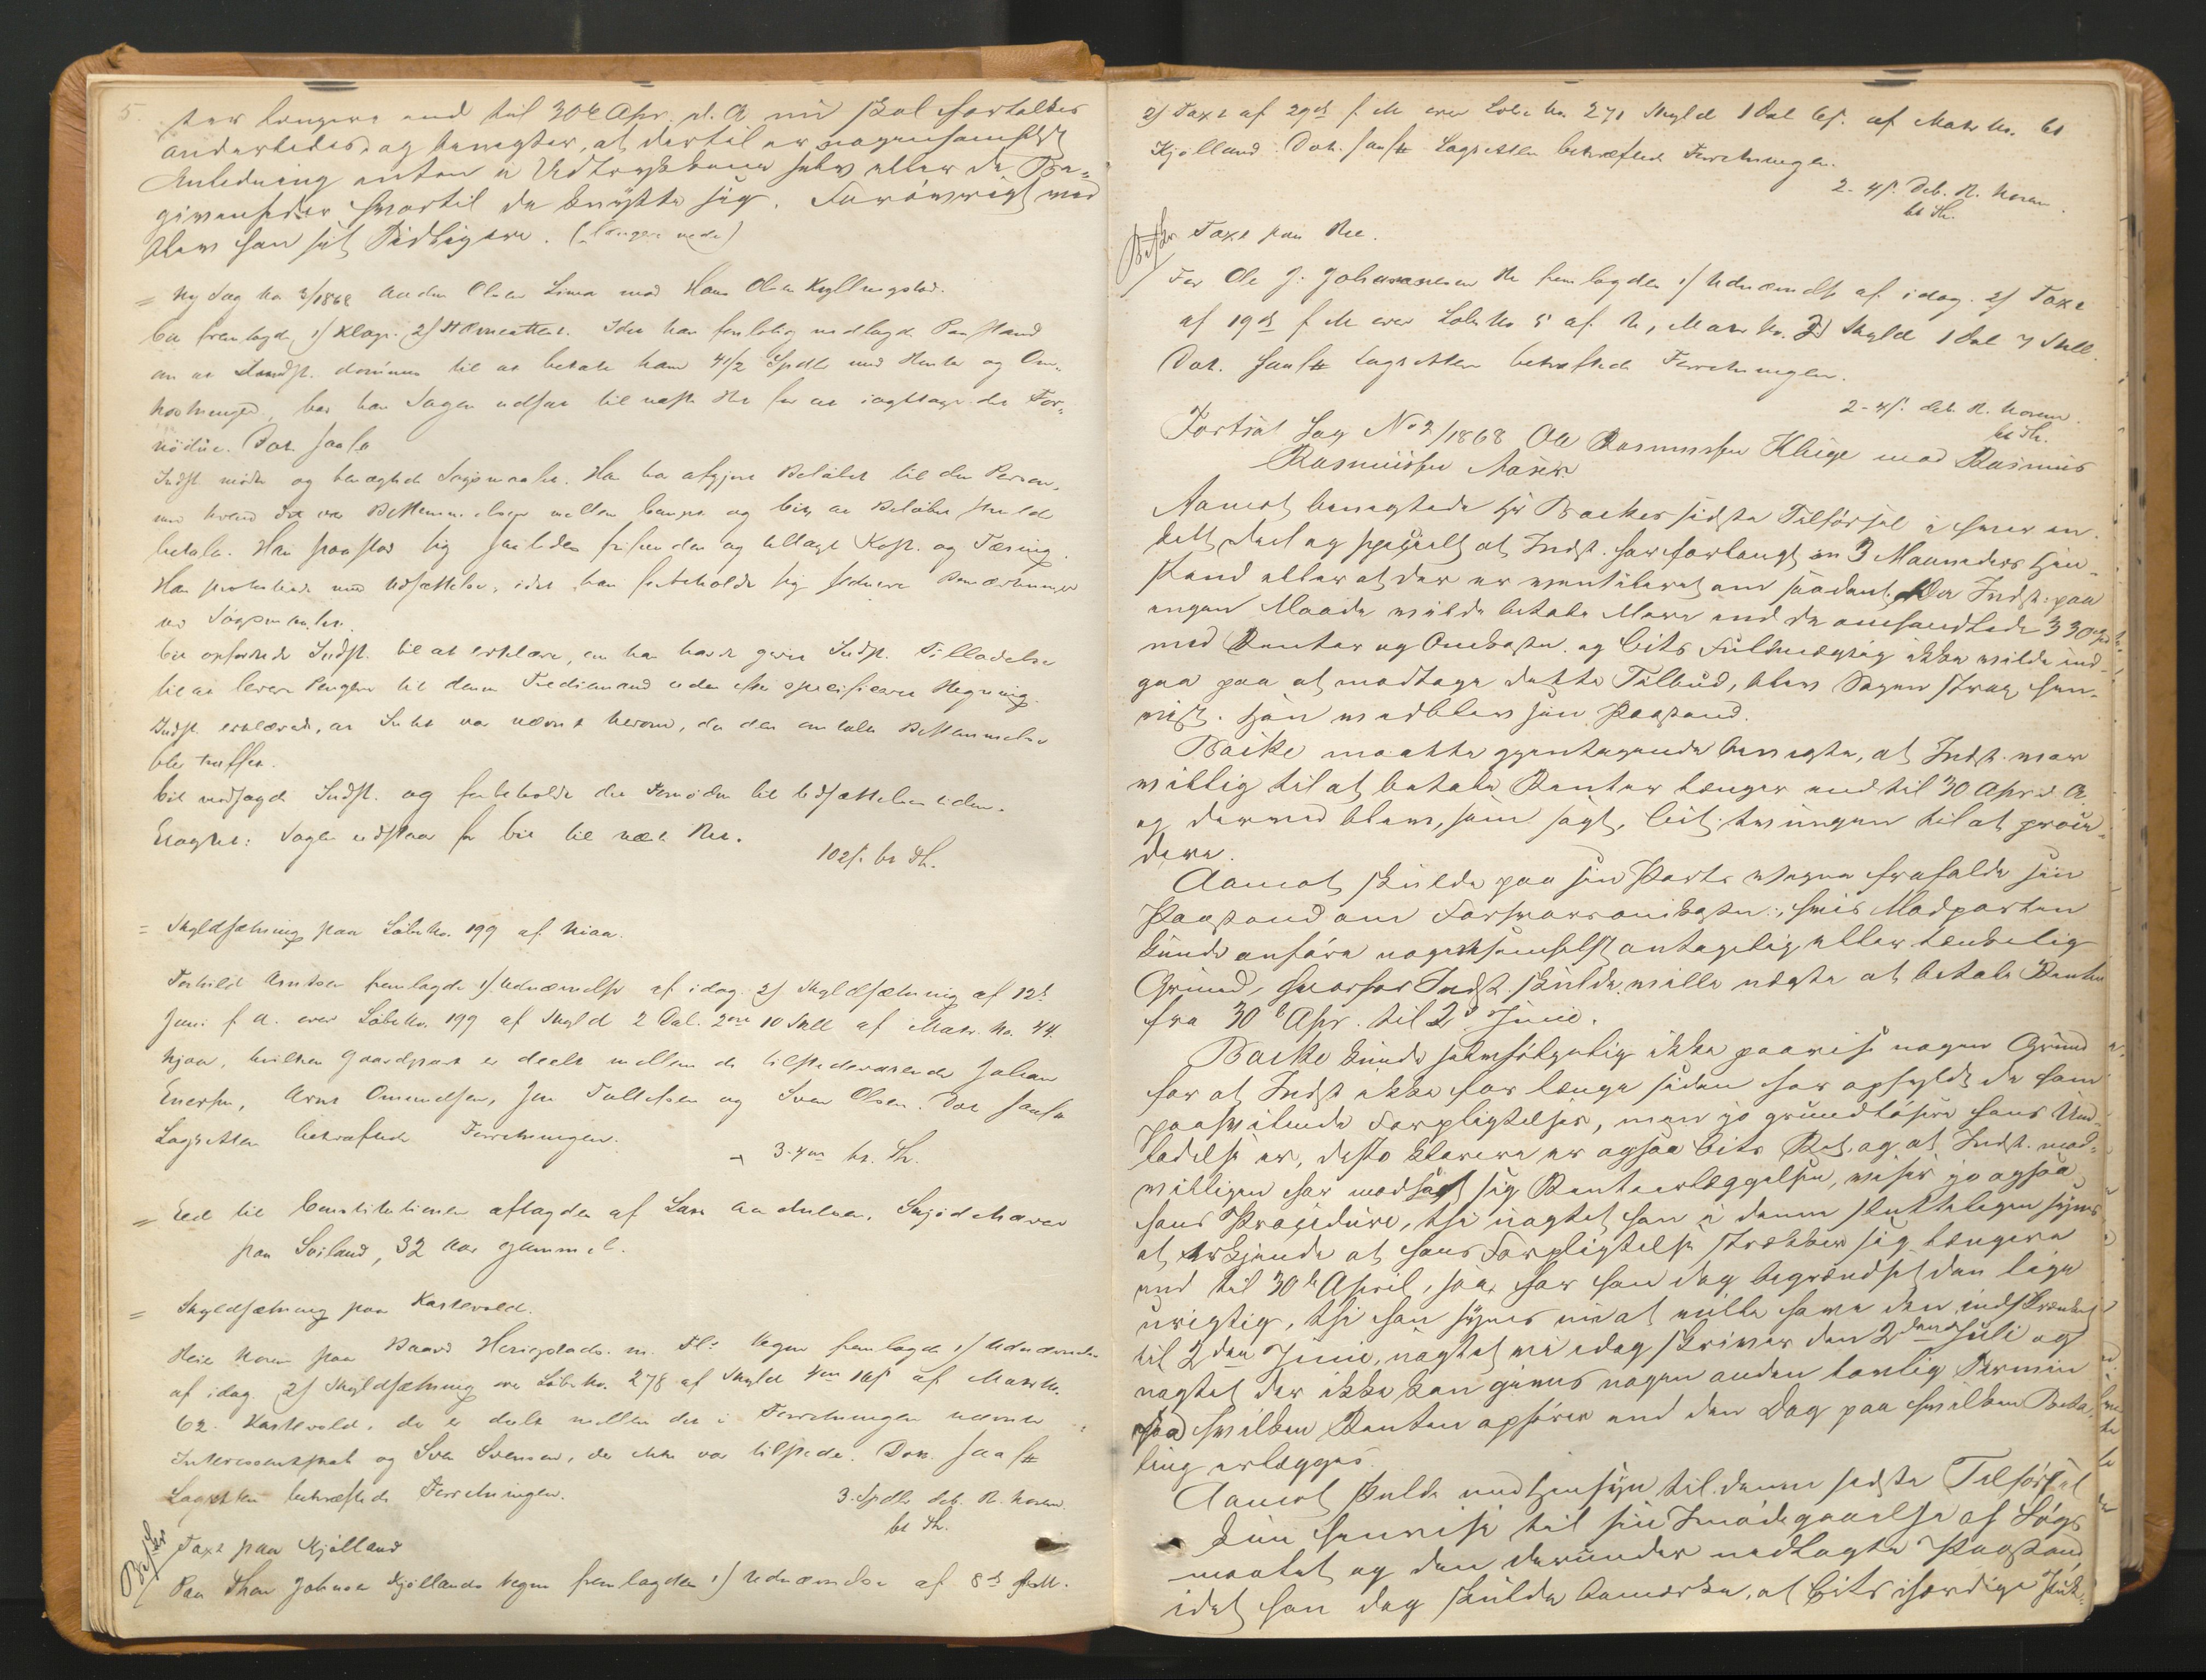 5
ter længere end til 30te Apr. d. A. nu skal fortolkes
anderledes og benegter, at dertil er nogensomhelst
Anledning enten i Udtrykkene selv eller de Be-
givenheder hvortil de knytte sig. Forøvrigt ved
blev han sit Tidligere. (længere nede)
= Ny Sag No 3/1868 Olsen Lima mod Hans Olsen Kyllingstad.
Cit fremlagde 1/ Klage 2/ Idet han foreløbig nedlagde Paastand
om at Indst. dømmes til at betale ham 41/2 Spdlr med Renter og Om-
kostninger, bad han Sagen udsat til næste Ret for at iagttage det For-
nødne. Dok. saal.
Indst mødte og benægtede Søgsmaalet. Han har afgjort Beløbet til den Person,
om hvem det var Bestemmelsen mellem ham og Cit, at Beløbet skulde
betales. Han paastod sig saaledes frifunden og tillagt Kost og Tæring.
Han protesterede mod Udsættelse, idet han forbeholdt sig senere Bemærkninger
ved Søgsmaalet.
Cit opfordrede Indst. til at erklære, om han havde givet Indst. Tilladelse
til at levere Pengene til denne Trediemand uden specificeret Regning.
Indst. erklærede, at Intet var nævnt herom, da den omtalte Bestemmelse
blev truffen.
Cit modsagde Indst. og forbeholdt det Fornødne til Udsættelsestiden.
Eragtet: Sagen udstaar for Cit til næste Ret.
102 s. bet Th.
= Skyldsætning paa Løbe No. 199 af Njaa.
Torkild Arntsen fremlagde 1/ Udnævnelse af idag 2/ Skyldsætning af 12te
Juni f. A. over Løbe No. 199 af Skyld 2 Dal. 2 ort 10 Skill af Matr. No. 44
Njaa, hvilken Gaardpart er deelt mellem de tilstedeværende Johan
Enersen, Arnt Omundsen, Jon Tollefsen og Sven Olsen. Dok saal.
Lagretten bekræftede Forretningen.
3. bet. Th.
= Eed til Constitutionen aflagdes af Lars
paa Soiland, 32 Aar gammel.
= Skyldsætning paa Kartevold.
Noren paa Baard Herigstads m. Fl.s Vegne fremlagde 1/ Udnævnelse
af idag 2/ Skyldsætning over Løbe No. 278 af Skyld af Matr No.
62. Kartevold, der er deelt mellem det i Forretningen nævnte
Interessentskab og Sven Svensen, der ikke var tilstede. Dok. saal.
Lagretten bekræftede Forretningen.
3. Spdlr deb. R. Noren.
bet Th.
Taxt paa Kjølland
Paa Thor Johnsen Kjøllands Vegne fremlagdes 1/ Udnævnelse af 8de f. M.
2/ Taxt af 29de f. M. over Løbe No. 271 Skyld 1 Dal 6 s. af Matr No. 61
Kjølland. Dok. saal. Lagretten bekræftede Forretningen.
2- 4 s. Deb. R. Noren.
bet Th.
Taxt paa Ree.
For Ole J. Johannesen Re fremlagdes 1/ Udnævnelse af idag. 2/ Taxt
af 19de f. M. over Løbe No 5 af Re, Matr No. 2 Skyld 1 Dal 7 Skill.
Dok. saal. Lagretten bekræftede Forretningen.
2- 4 s. deb. R. Noren.
bet Th.
Fortsat Sag No 2/1868 Ole Rasmussen Kluge mod Rasmus
Rasmussen
Aamot benegtede Hr Backes sidste Tilførsel i hver en-
kelt Deel og specielt at Indst. har forlangt en 3 Maaneders Hen-
stand eller at der er ventileret om saadant. Da Indst. paa
ingen Maade vilde betale Mere end de omhandlede 330 Spd
med Renter og Omkostn. og Cits Fuldmægtig ikke vilde ind-
gaa paa at modtage dette Tilbud, blev Sagen strax hen-
vist. Han vedblev sin Paastand.
Backe maatte gjentagende benegte, at Indst. var
villig til at betale Renter længer end til 30 Apr d. A.
og derved blev, som sagt, Cit. tvungen til at proce-
dere.
Aamot skulde paa sin Parts Vegne frafalde sin
Paastand om Forsvarsomkostn., hvis Modparten
kunde anføre nogensomhelst antagelig eller tænkelig
Grund, hvorfor Indst. skulde ville negte at betale Renter
fra 30te Apr. til 2d Juni.
Backe kunde selvfølgelig ikke paavise nogen Grund
for at Indst ikke for længe siden har opfyldt de ham
paahvilende Forpligtelser, men jo grundløsere hans Und-
ladelse er, desto klarere er ogsaa Cits Ret, og at Indst. mod-
villigen har modsat sig Renteerlæggelsen, viser jo ogsaa
hans Procedure, thi uagtet han i denne sluttelegen synes
at erkjende at hans Forpligtelse strækker sig længere
end til 30te April, saa har han dog begrændset den lige
urigtig, thi han synes nu at ville have den indskrænket
til 2den Juni, uagtet vi idag skriver den 2den Juli og
uagtet der ikke kan gives nogen anden lovlig Termin
paa hvilken Renten ophører end den Dag paa hvilken Beta-
ling erlægges.
Aamot skulde med Hensyn til denne sidste Tilførsel
kun henvise til sin Imødegaaelse af Søgs-
maalet og den derunder nedlagte Paastand
idet han dog skulde bemærke, at Cits